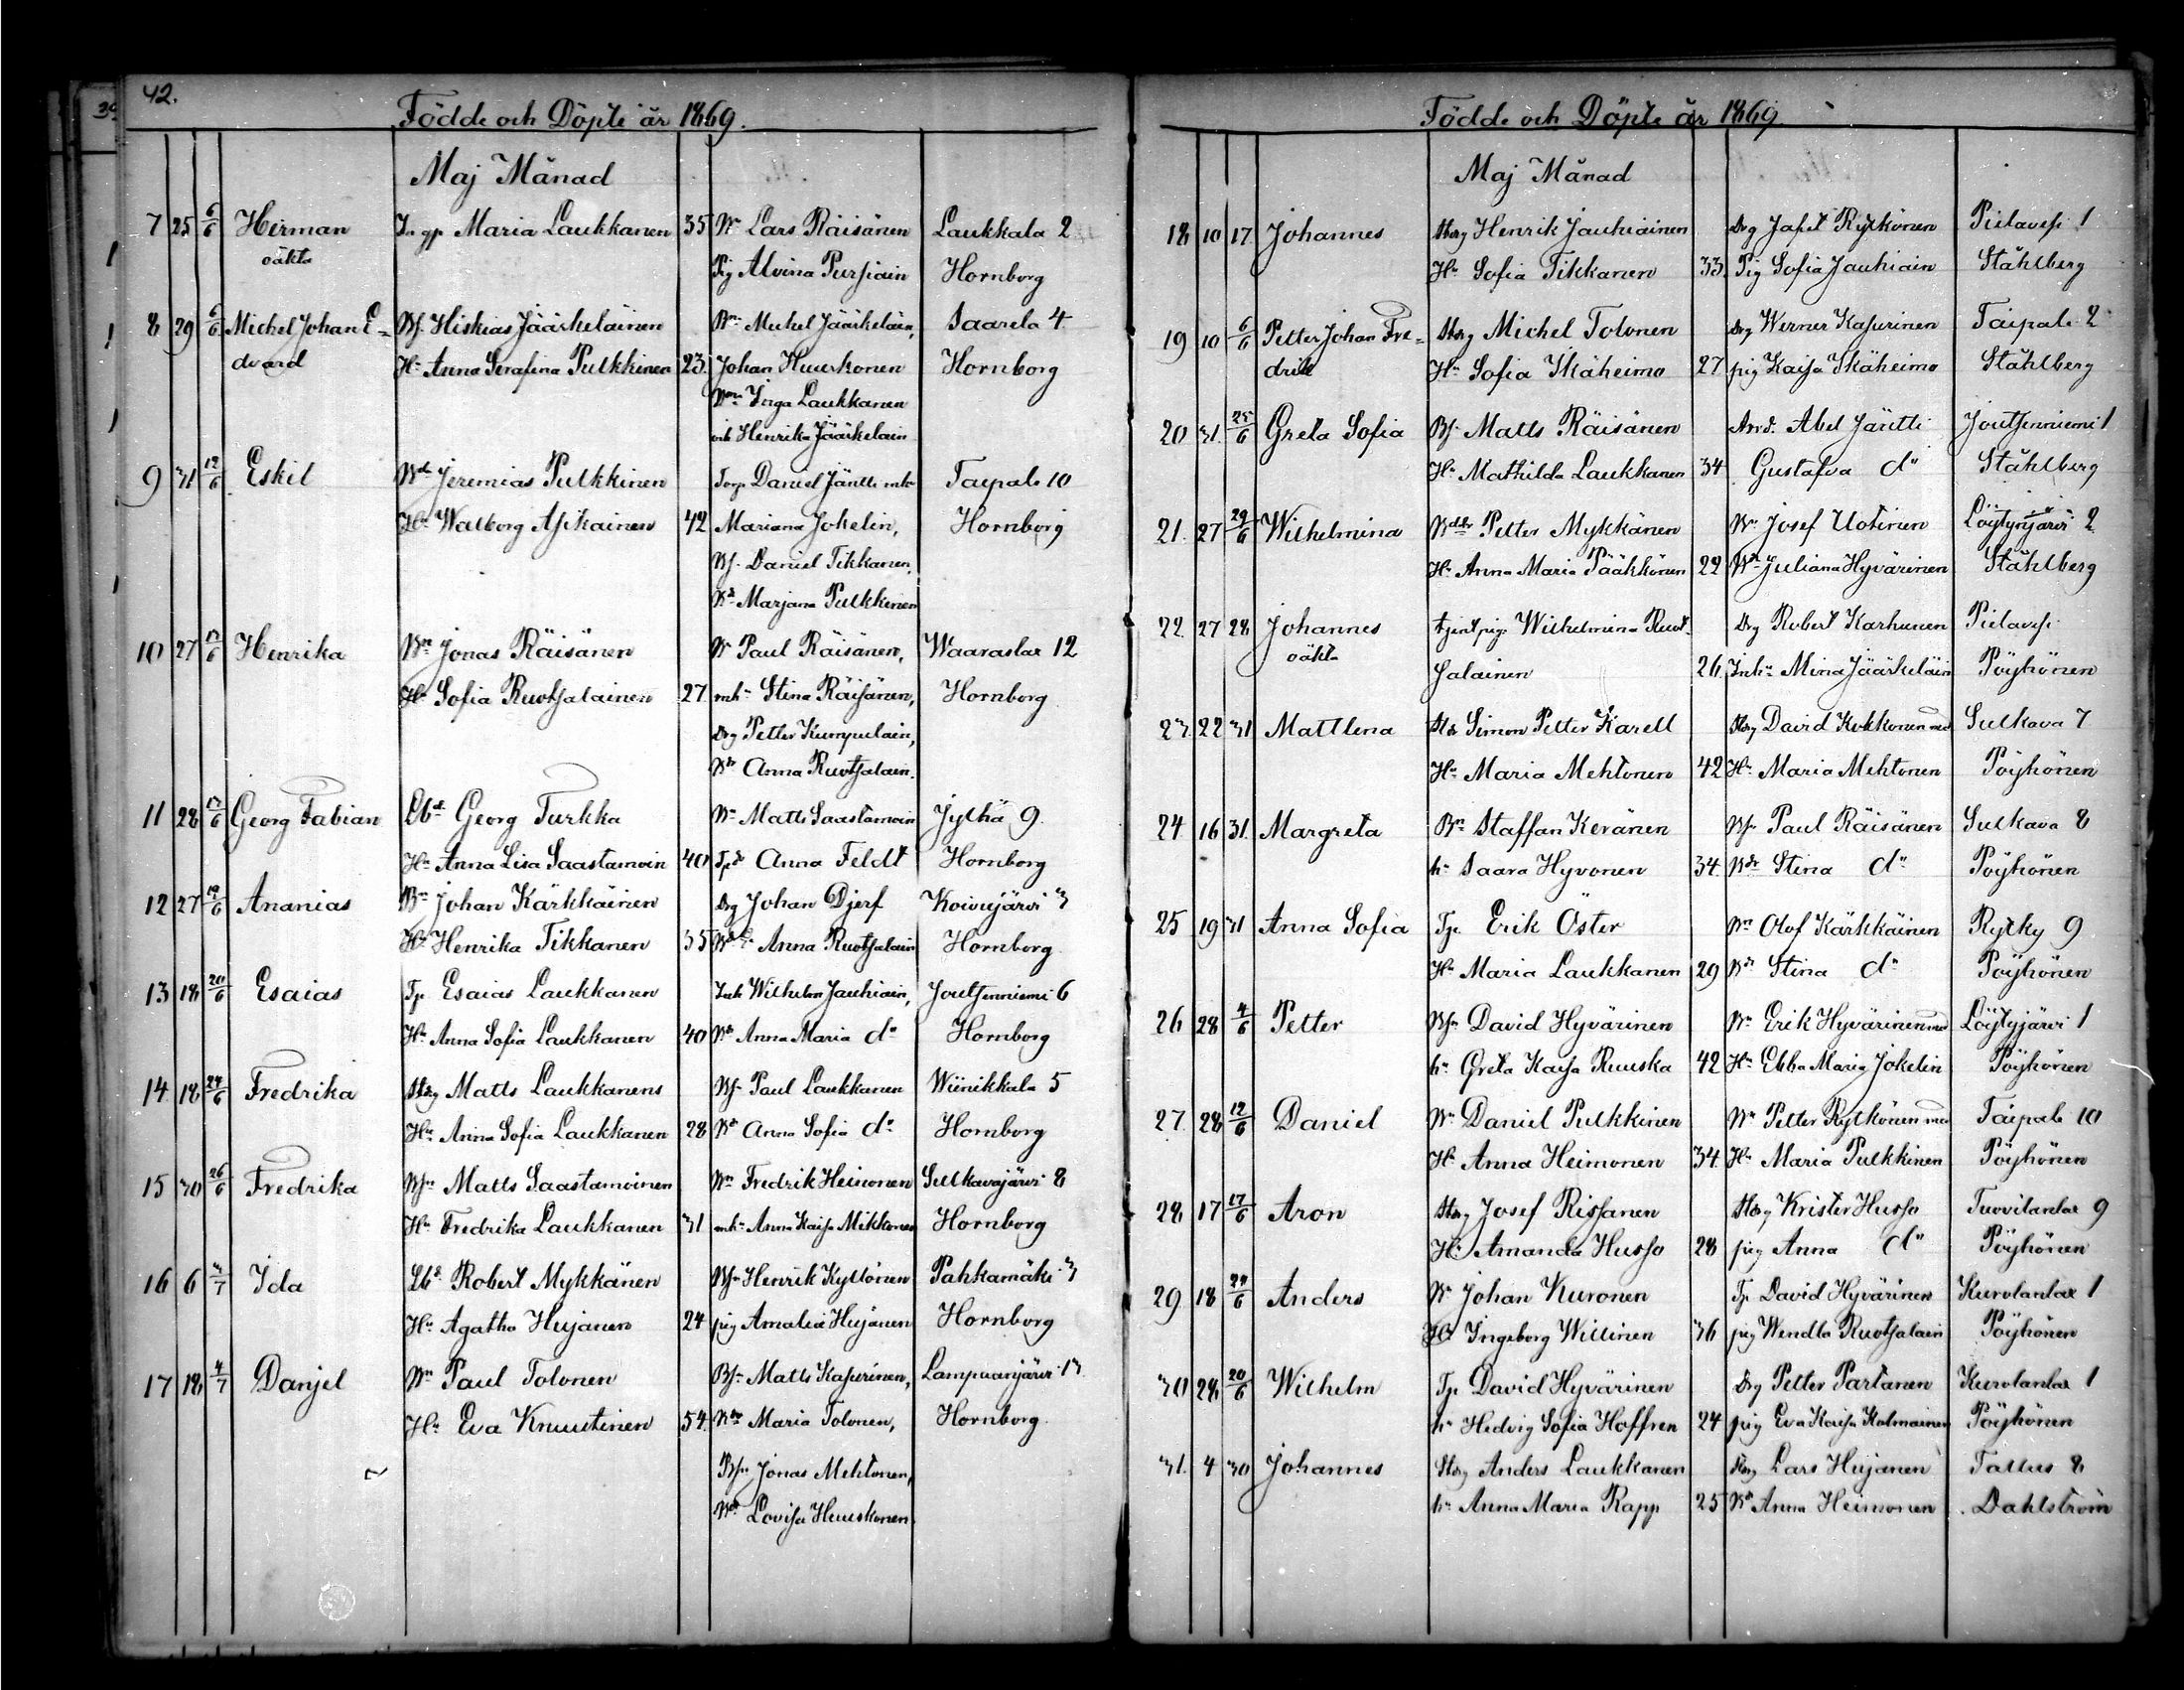 42.
Födde och Döpte år 1869.
Maj Månad
7 25 6/6 Herman Maria Laukkanen 35 Lars Räisänen Laukkala 2
oäkta Pig Alvina Pursiain Hornborg
8 29 6/6 Michel Johan E= Hiskias Jääskeläinen Michel Jääskeläin, Saarela 4
dvard Hu Anna Serafina Pulkkinen 23. Johan Huuskonen Hornborg
Inga Laukkanen
och Henrika Jääskelain
9 31 12/6 Eskil Jeremias Pulkkinen Torp Daniel Jäntti mh Taipale 10
Hu Walborg Assikainen 42 Mariana Jokelin, Hornborg
Daniel Tikkanen,
Marjana Pulkkinen
10 27 17/6 Henrika Jonas Räisänen Paul Räisänen, Waaraslax 12
Hu Sofia Ruotsalainen 27 mh Stina Räisänen, Hornborg
Drg Petter Kumpulain,
Anna Ruotsalain.
11 28 17/6 Georg Fabian Georg Turkka Matts Saastamoin Jylhä 9.
Hu Anna Lisa Saastamoin 40 Anna Feldt Hornborg
12 27 19/6 Ananias Johan Kärkkäinen Drg Johan Djerf Koivujärvi 3
Hu Henrika Tikkanen 35 Anna Ruotsalain Hornborg
13 18 20/6 Esaias Tp Esaias Laukkanen Inh Wilhelm Jauhiain, Joutsenniemi 6
Hu Anna Sofia Laukkanen 40 Anna Maria do Hornborg
14 18 24/6 Fredrika Matts Laukkanens Paul Laukkanen Wiinikkala 5
Hu Anna Sofia Laukkanen 28 Anna Sofia do Hornborg
15 30 26/6 Fredrika Matts Saastamoinen Fredrik Heimonen Sulkavajärvi 8
Hu Fredrika Laukkanen 31 mh Anna Kaisa Mikkonen Hornborg
16 6 3/7 Ida Robert Mykkänen Henrik Kyllönen Pahkamäki 3
Hu Agatha Hujanen 24 pig Amalia Hujanen Hornborg
17 18 4/7 Danjel Paul Tolonen Matts Kasurinen, Lampaanjärvi 13
Hu Eva Knuutinen 54. Maria Tolonen, Hornborg
Jonas Mehtonen,
Lovisa Huuskonen
Födde och Döpte år 1869
Maj Månad
18 10 17 Johannes Henrik Jauhiainen Drg Jafet Rytkönen Pielavesi 1
Hu Sofia Tikkanen 33. Pig Sofia Jauhiain Ståhlberg
19 10 6/6 Petter Johan Fre= Michel Tolonen Drg Werner Kasurinen Taipale 2
drik Hu Sofia Ikäheimo 27 pig Kaisa Ikäheimo Ståhlberg
20 31. 25/6 Greta Sofia Matts Räisänen Abel Jäntti Joutsenniemi 1
Hu Mathilda Laukkanen 34 Gustafva do Ståhlberg
21. 27 29/6 Wilhelmina Petter Mykkänen Josef Uotinen Löytynjärvi 2
Hu Anna Maria Pääkkönen 22 Juliana Hyvärinen Ståhlberg
22. 27 28 Johannes tjenst pig Wilhelmina Ruot- Drg Robert Karhunen Pielavesi
oäkta salainen 26. Inh Mina Jääskeläin Pöyhönen
23. 22 31 Mattlena Simon Petter Karell David Kokkonen med Sulkava 7
Hu Maria Mehtonen 42 Hu Maria Mehtonen Pöyhönen
24 16 31. Margreta Staffan Keränen Paul Räisänen Sulkava 8
hu Saara Hyvönen 34. Stina do Pöyhönen
25 19 31 Anna Sofia Tp Erik Öster Olof Kärkkäinen Rytky 9
Hu Maria Laukkanen 29 Stina do Pöyhönen
26 28 4/6 Petter David Hyvärinen Erik Hyvärinen med Löytyjärvi 1
hu Greta Kaisa Ruuska 42 Hu Ebba Maria Jokelin Pöyhönen
27. 28 12/6 Daniel Daniel Pulkkinen Petter Rytkönen med Taipale 10
Hu Anna Heimonen 34. Hu Maria Pulkkinen Pöyhönen
28 17 17/6 Aron Josef Rissanen Krister Husso Tuovilanlax 9
Hu Amanda Husso 28 pig Anna do Pöyhönen
29 18 24/6 Anders Johan Kuronen Tp David Hyvärinen Kuvolanlax 1
Hu Ingeborg Willinen 36 pig Wendla Ruotsalain Pöyhönen
30 28 20/6 Wilhelm Tp David Hyvärinen Drg Petter Partanen Kuvolanlax 1
hu Hedvig Sofia Hoffren 24 pig Eva Kaisa Kolmainen Pöyhönen
31. 4 30 Johannes Anders Laukkanen Lars Hujanen Tallus 8
hu Anna Maria Rapp 25 Anna Heimonen Dahlström